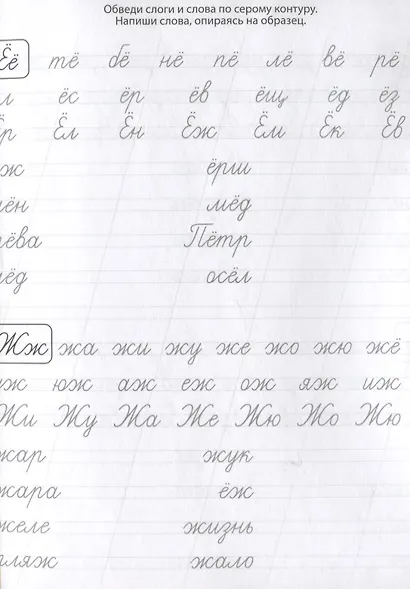 Обведи слоги и слова по серому контуру.
Напиши слова, опираясь на образец.
Ёё тё бё нё пё лё вё рё
ёс ёр ёв ёщ ёд ёз
Ёл Ён Ёж Ём Ёк Ёв
ёрш
мёд
Пётр
осёл
Жж жа жи жу же жо жю жё
юж аж еж ож яж иж
Жи Жу Жа Же Жю Жо Жю
жар жук
жара ёж
желе жизнь
пляж жало